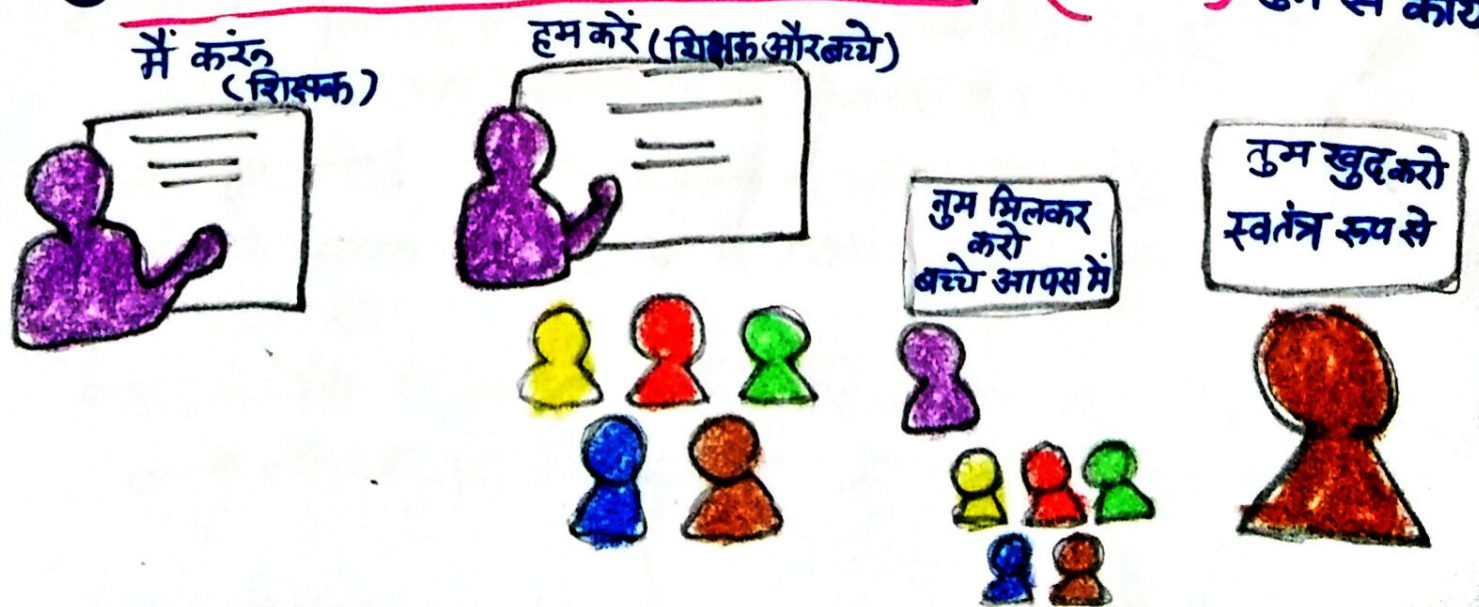 से कार्य
मैं करूं
(शिक्षक)
हम करें (शिक्षक और बच्चे)
तुम मिलकर
करो
बच्चे आपस में
तुम खुद करो
स्वतंत्र रूप से